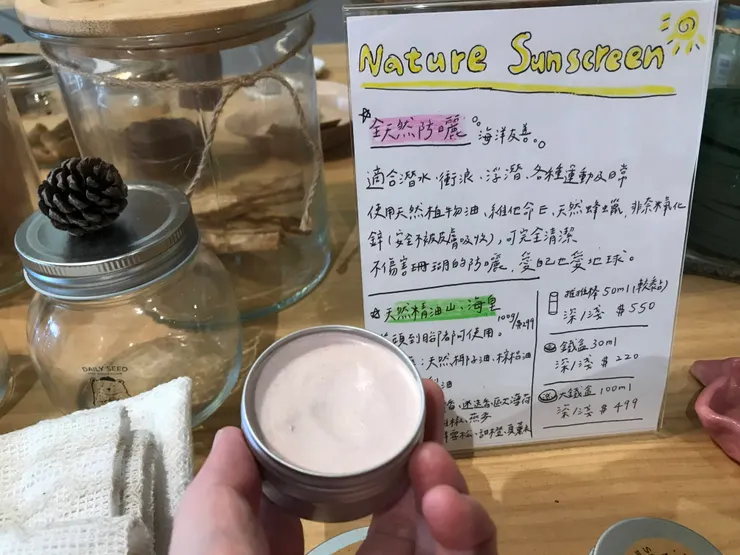 Nature Sunscreen
全天然防曬
海洋友善
適合潛水、衝浪、浮潛、各種運動及日常
使用天然植物油、維他命E、天然蜂蠟、非奈米氧化
鋅(安全不被皮膚吸收),可完全清潔
不傷害珊瑚的防曬,愛自己也愛地球。
天然精油山、海皂
100g/$299
頭到腳都可使用。
:天然椰子油、棕梠油
油
推推棒 50ml(較黏)
深/淺 $550
鐵盒 30ml
深/淺 $220
大鐵盒 100ml
深/淺 $499
DAILY SEED